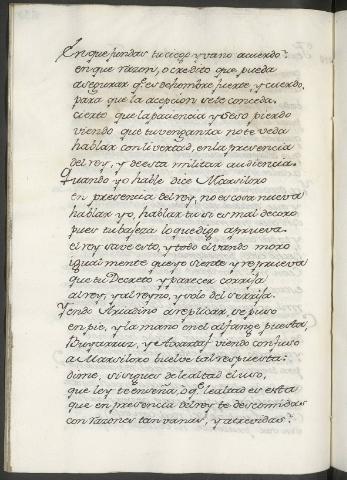 En que fundas tu ciego y vano acuerdo?
en que razon, o credito que pueda
asegurar q.e es de hombre fuerte, y cuerdo,
para que la acepcion se lo conceda.
cierto que la paciencia y seso pierdo
viendo que tu venganza no te veda
hablar con livertad, en la presencia
del rey, y de esta militar audiencia.
Quando yo hable dice Marsiloro
en presencia del rey, no es cosa nueva
hablar yo, hablar tu si es mal decoro
pues tu bajeza lo que digo aprueva.
el rey save esto, y todo el vando moro
igual mente que yo siente y reprueva
que tu Decreto y parecer corrija
al rey, y al reyno, y solo del se rija.
Yendo a replicar, se puso
en pie, y la mano en el alfange puesta,
y viendo confuso
a Marsiloro buelve tal respuesta:
dime, si sigues de lealtad el uso,
que ley te enseña, o q.e lealtad es esta
que en presencia del rey te descomidas
con razones tan vanas, y atrevidas?